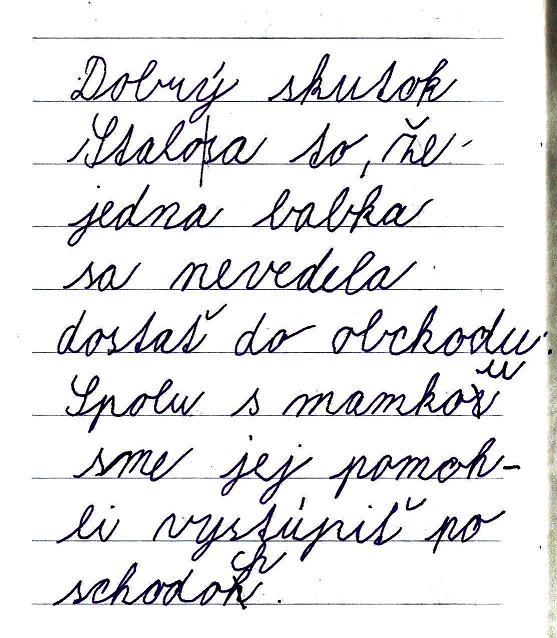 Dobrý skutok
Stalo sa to, že
jedna babka
sa nevedela
dostať do obchodu.
Spolu s mamkou
sme jej pomoh-
li vystúpiť po
schodoch.